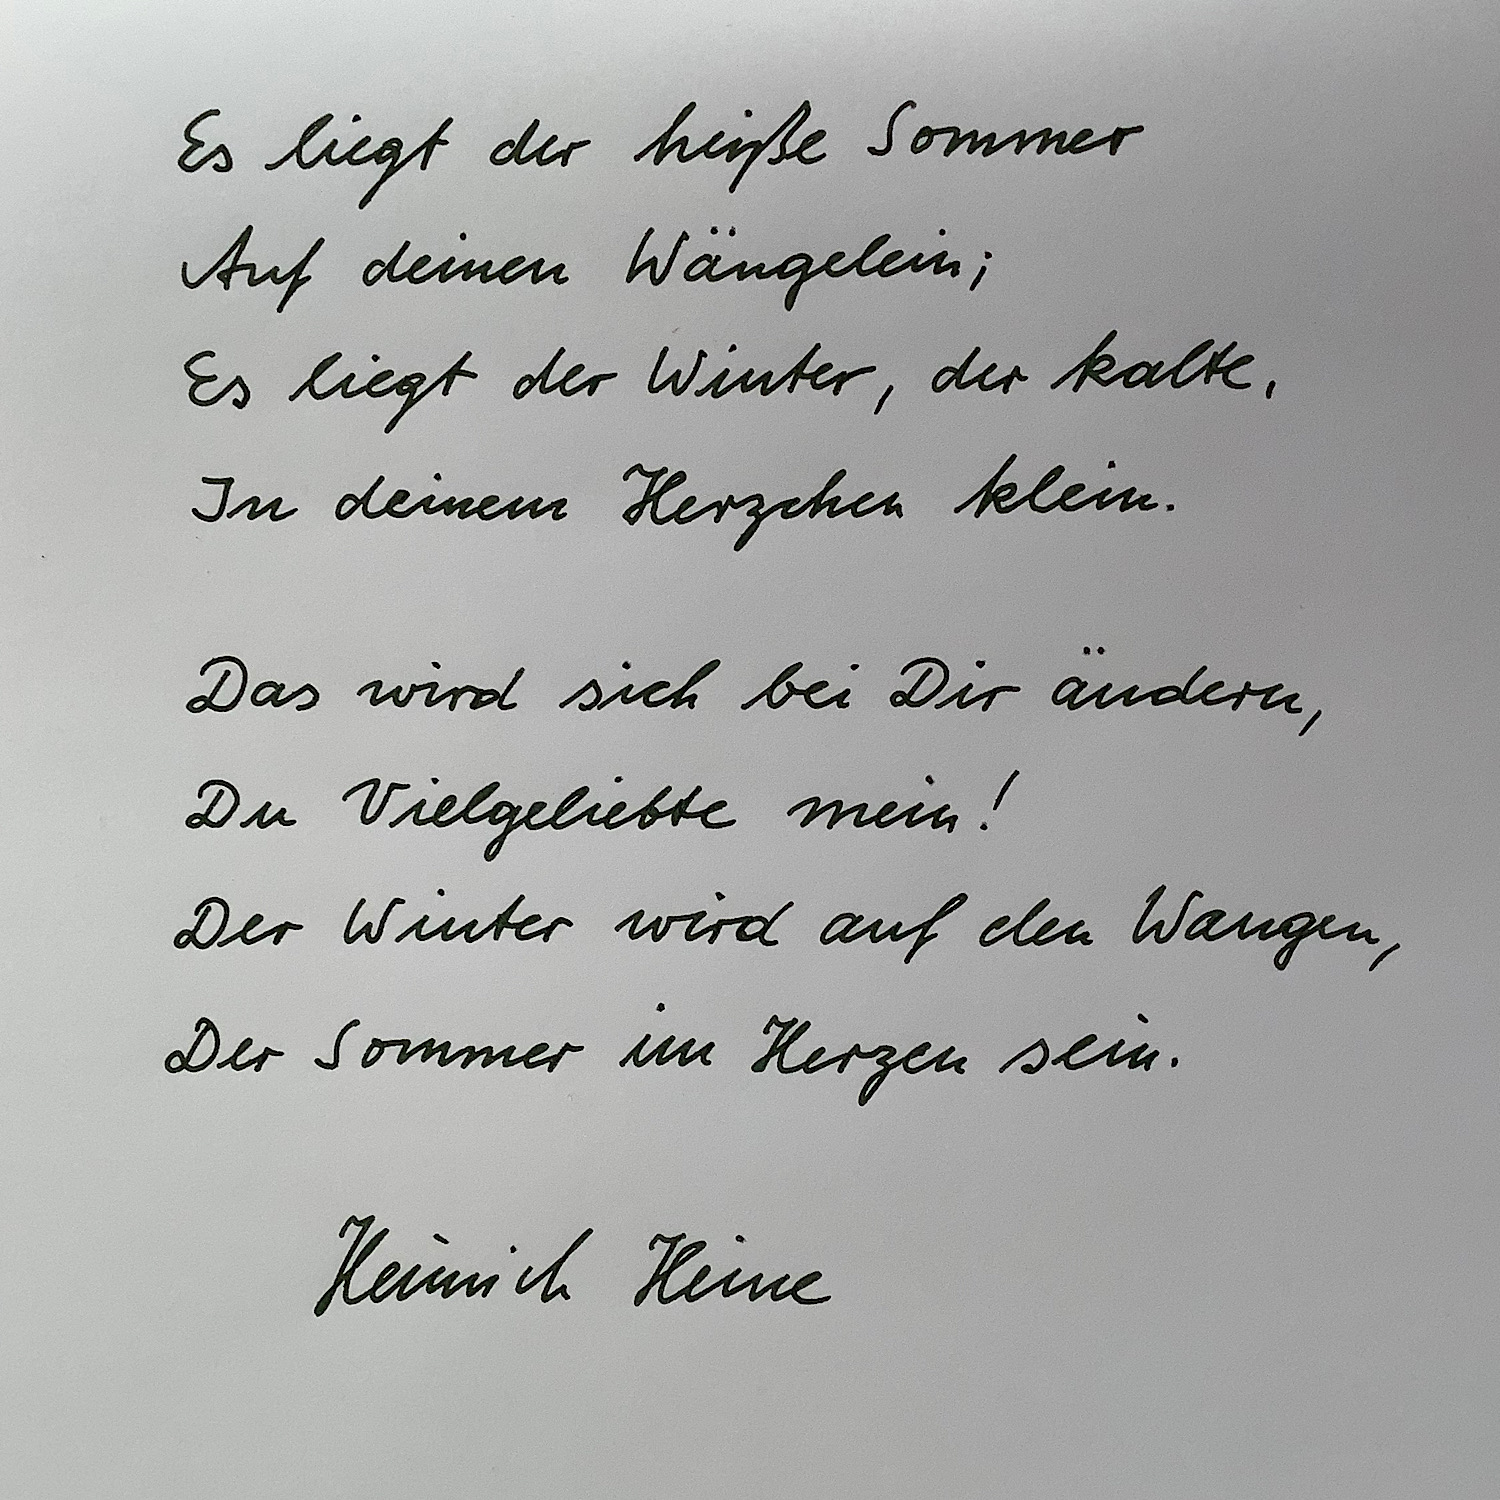 Es liegt der heiße Sommer
Auf deinen Wängelein;
Es liegt der Winter, der kalte,
In deinem Herzchen klein.
Das wird sich bei Dir ändern,
Du Vielgeliebte mein!
Der Winter wird auf den Wangen,
Der Sommer im Herzen sein.
Heinrich Heine